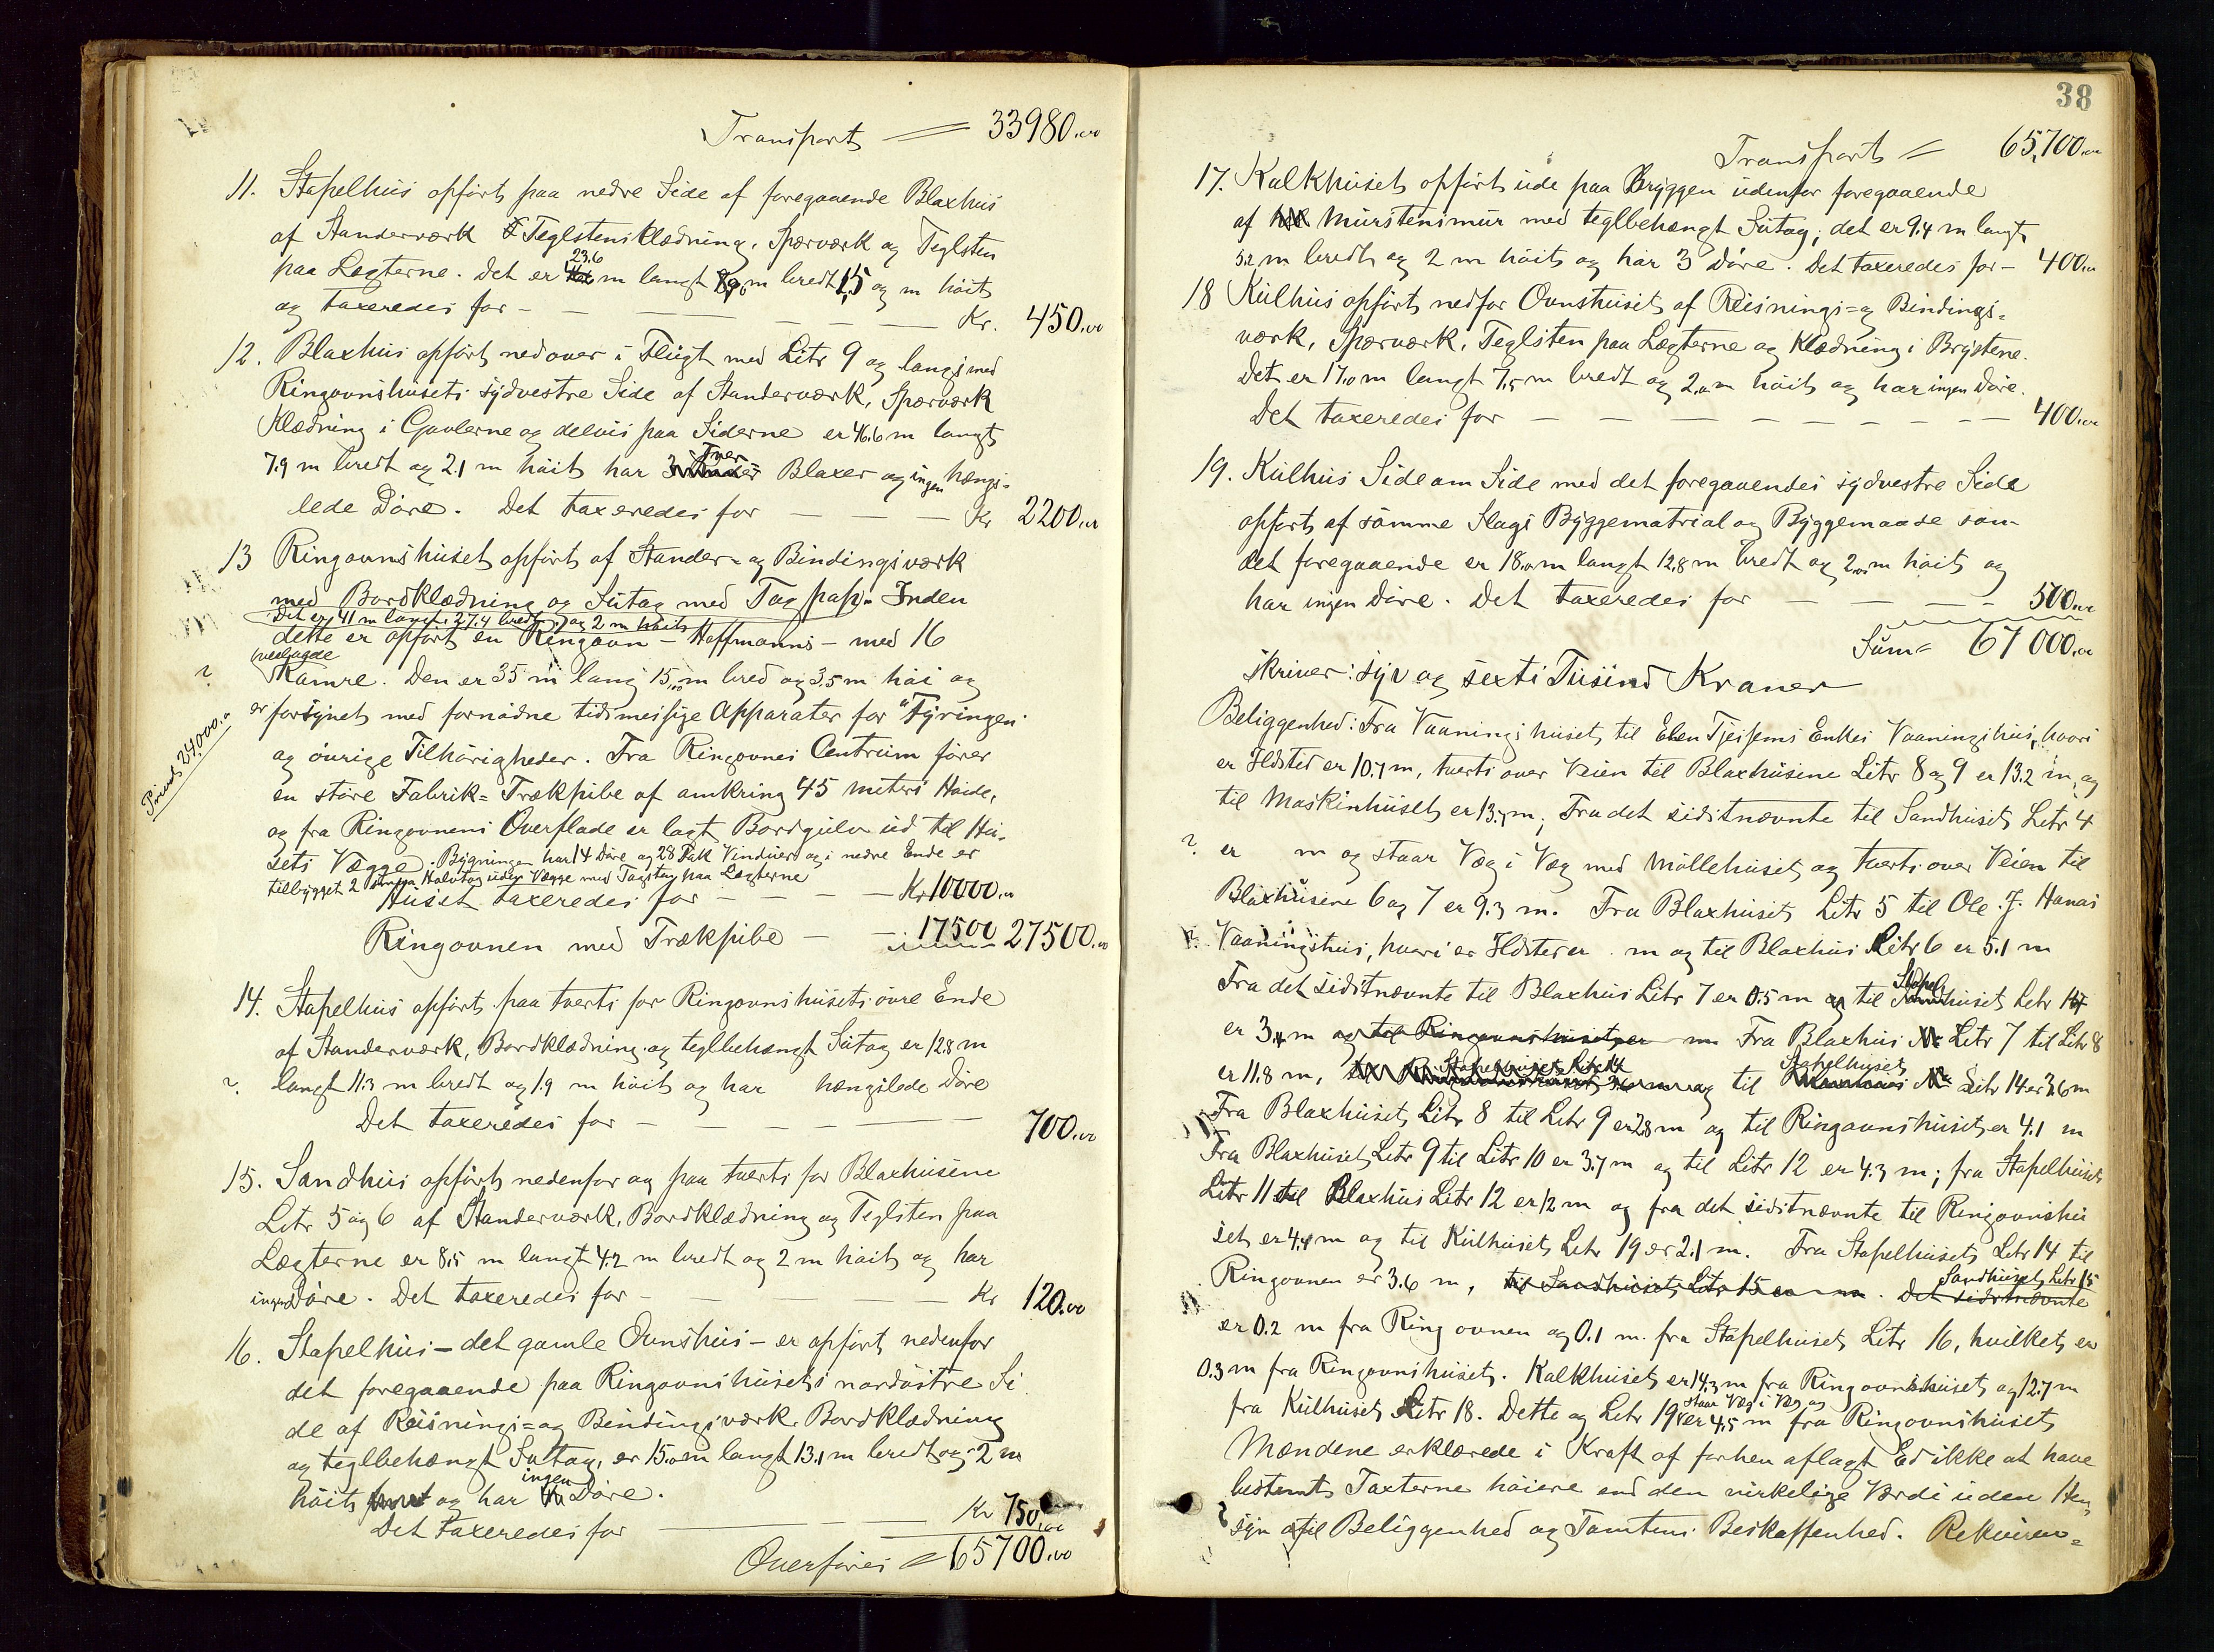 Transport = 33980.00
11. Stapelhus opført paa nedre Side af foregaaende Blaxhus
af Standerværk & Teglstensklædning, Spærværk og Teglsten
23.6
paa Lægterne. Det er m langt m bredt 1,5 og m høit
og taxeredes for - Kr. 450.00
12. Blaxhus opført nedover i Flugt med Litr 9 og langs med
Ringovnshusets sydvestre Side af Standerværk, Spærværk
Klædning i Gavlerne og delvis paa Siderne er 46.6 m langt
7.9 m bredt og 2.1 m høit har 3 Blaxer og ingen hængs-
lede Døre. Det taxeredes for - Kr 2200.00
13 Ringovnshuset opført af Stander- og Bindingsværk
med Bordklædning og Sutag med Tagpap. Inden
Det er 41 m langt, 27.4 bredt og 2 m høit
dette er opført en Ringovn - Hoffmanns - med 16
? Kamre. Den er 35 m lang 15,00 m bred og 3.5 m høi og
er forsynet med fornødne tidsmessige Apparater for Fyringen
og øvrige Tilhørigheder. Fra Ringovnes Centrum fører
Privat 24000.00
en støre Fabrik-Trækpibe af omkring 45 meters Høide,
og fra Ringovnens Overflade er lagt Bordgulv ud til Hu-
sets Vægge. Bygningen har 14 Døre og 28 Fak Vinduer og i nedre Ende er
tilbygget 2 Halvtag uden Vægge med Tagsten paa Lægterne
Huset taxeredes for - Kr 10000.00
Ringovnen med Trækpibe - 17500 27500.00
14. Stapelhus opført paa tverts for Ringovnshusets øvre Ende
af Standerværk, Bordklædning og teglbehængt Sutag er 12.8 m
? langt 11.3 m bredt og 1.9 m høit og har hængslede Døre
Det taxeredes for - 700.00
15. Sandhus opført nedenfor og paa tverts for Blaxhusene
Litr 5 og 6 af Standerværk, Bordklædning og Teglsten paa
Lægterne er 8.5 m langt 4.2 m bredt og 2 m høit og har
ingen Døre. Det taxeredes for - Kr 120.00
16. Stapelhus - det gamle Ovnshus - er opført nedenfor
det foregaaende paa Ringovnshusets nordøstre Si
de af Reisnings- og Bindingsværk Bordklædning
og teglbehængt Sutag, er 15.0 m langt 13.1 m bredt og 2 m
høit og har ingen Døre.
Det taxeredes for - Kr 750.00
Overføres = 65700.00
38
Transport = 65,700.00
17. Kalkhuset opført ude paa Bryggen udenfor foregaaende
af Murstensmur med teglbehængt Sutag; det er 9.4 m langt
5.2 m bredt og 2 m høit og har 3 Døre. Det taxeredes for - 400.00
18 Kulhus opført nedfor Ovnshuset af Reisnings- og Bindings-
værk, Spærværk, Teglsten paa Lægterne og Klædning i Brystene.
Det er 17.0 m langt 7.5 m bredt og 2.0 m høit og har ingen Døre.
Det taxeredes for - 400.00
19. Kulhus Side om Side med det foregaaendes sydvestre Side
opført af samme Slags Byggematrial og Byggemaade som
det foregaaende er 18.0 m langt 12.8 m bredt og 2.0 m høit og
har ingen Døre. Det taxeredes for - 500.00
Sum = 67000.00
skriver: syv og sexti Tusind Kroner
Beliggenhed: Fra Vaaningshuset til Elen Tjessems Enkes Vaaningshus, hvori
er Ildsted er 10.7 m, tverts over Veien til Blaxhusene Litr 8 og 9 er 13.2 m, og
til Maskinhuset er 13.7 m; Fra det sidstnævnte til Sandhuset Litr 4
? er m og staar Væg i Væg med Møllehuset og tverts over Veien til
Blaxhusene 6 og 7 er 9.3 m. Fra Blaxhuset Litr 5 til Ole J. Hanas
? Vaaningshus, hvori er Ildsted er m og til Blaxhus Litr 6 er 5.1 m
Fra det sidstnævnte til Blaxhus Litr 7 er 0.5 m og til Stapelhuset Litr
er 3.4 m og til Ringovnshuset er m Fra Blaxhus Litr 7 til Litr 8
er 11.8 m, Stapelhuset Litr 14 og til Stapelhuset Litr 14 er 3.6 m
Fra Blaxhuset Litr 8 til Litr 9 er 2.8 m og til Ringovnshuset er 4.1 m
Fra Blaxhuset Litr 9 til Litr 10 er 3.7 m og til Litr 12 er 4.3 m; fra Stapelhuset
Litr 11 til Blaxhus Litr 12 er 12 m og fra det sidstnævnte til Ringovnshu
set er 4.4 m og til Kulhuset Litr 19 er 2.1 m. Fra Stapelhuset Litr 14 til
Ringovnen er 3.6 m, til Sandhuset Litr 15 er m. Det sidstnævnte
Sandhuset Litr 15
er 0.2 m fra Ringovnen og 0.1 m fra Stapelhuset Litr 16, hvilket er
0.3 m fra Ringovnshuset. Kalkhuset er 14.3 m fra Ringovnshuset og 12.7 m
staar Væg i Væg og
fra Kulhuset Litr 18. Dette og Litr 19 er 4.5 m fra Ringovnshuset
Mændene erklærede i Kraft af forhen aflagt Ed ikke at have
bestemt Taxterne høiere end den virkelige Værdi uden Hen-
syn til Beliggenhed og Tomtens Beskaffenhed. Rekviren-